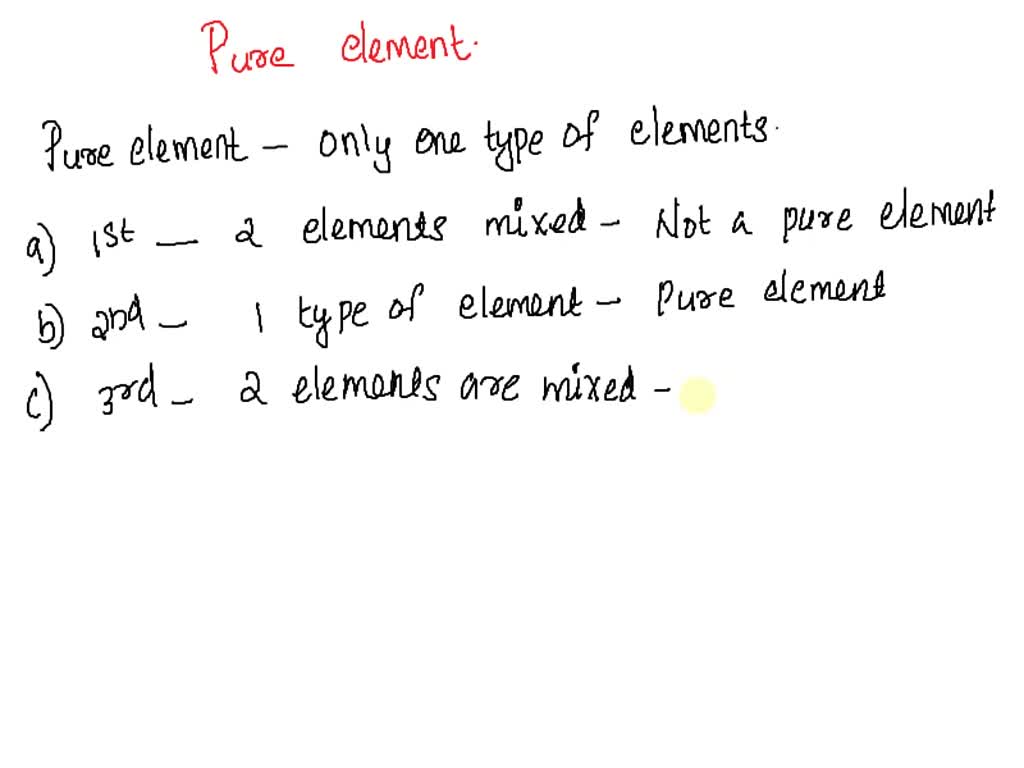 Pure element.
Pure element - only one type of elements.
a) 1st - 2 elements mixed - Not a pure element
b) 2nd - 1 type of element - Pure element
c) 3rd - 2 elements are mixed -